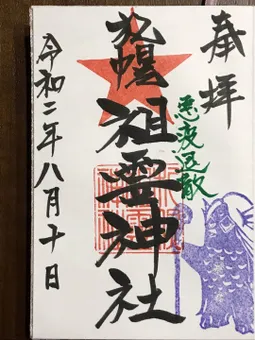 奉拝
悪疫退散
札幌
祖霊神社
令和二年八月十日